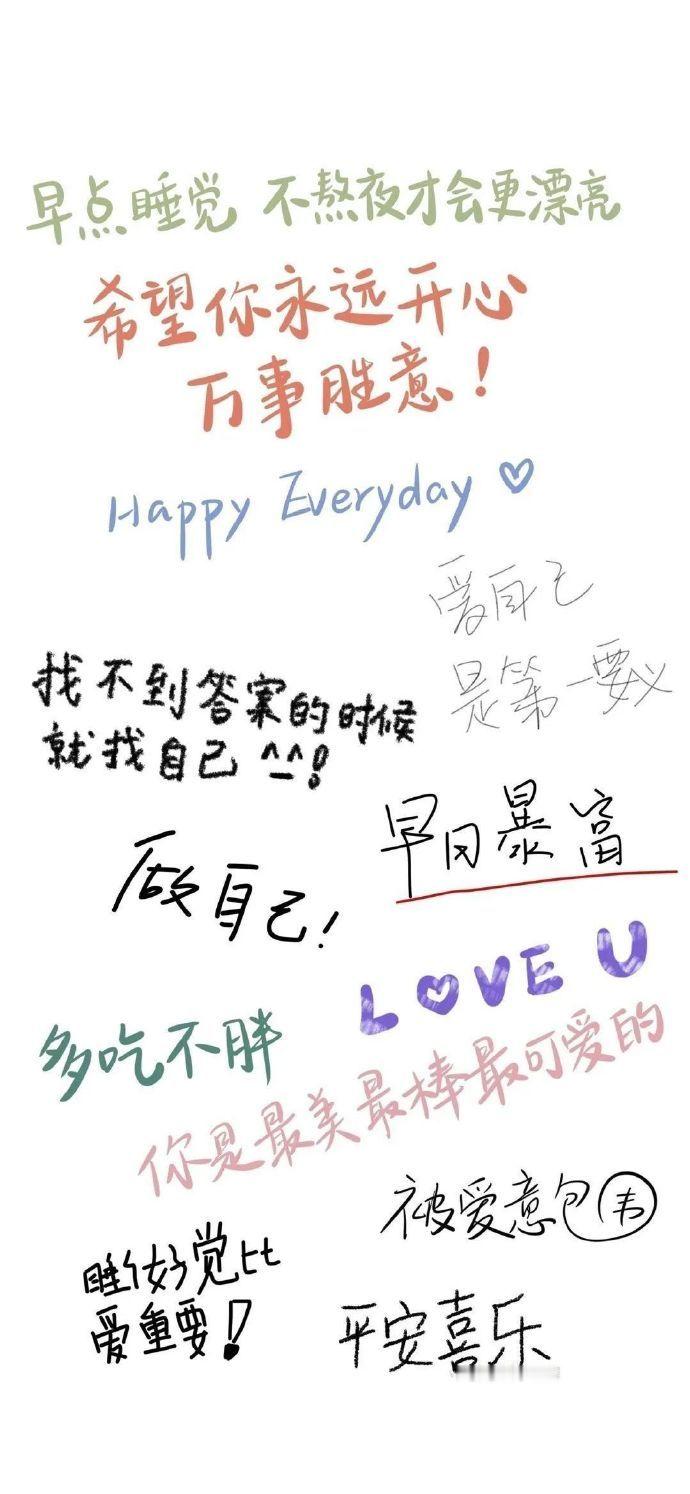 早点睡觉 不熬夜才会更漂亮
希望你永远开心
万事胜意！
Happy Everyday ♡
爱自己
是第一要义
找不到答案的时候
就找自己 ^_^!
早日暴富
做自己！
LOVE U
多吃不胖
你是最美最棒最可爱的
被爱意包围
睡个好觉比
爱重要！
平安喜乐